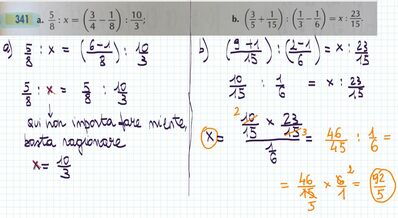 341 a. 5/8 : x = (3/4 − 1/8) : 10/3;
b. (3/5 + 1/15) : (1/3 − 1/6) = x : 23/15.
a) 5/8 : x = (6−1/8) : 10/3
5/8 : x = 5/8 : 10/3
qui non importa fare niente,
basta ragionare
x = 10/3
b) (9+1/15) : (2−1/6) = x : 23/15
10/15 : 1/6 = x : 23/15
x = 2 10/15 × 23/15 3 / 1/6 = 46/45 : 1/6 =
= 46/15 5 × 6/1 2 = 92/5